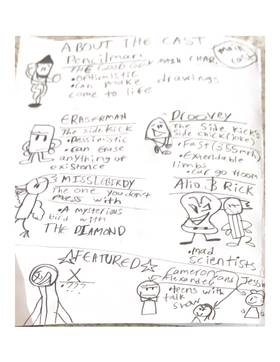 ABOUT THE CAST
Pencilman:
THE GOOD GUY MAIN CHAR.
• Optimistic
• can make drawings
come to life
main
ERASERMAN
The side kick
• Pessimistic
• can erase
anything of
existance
Droovey
the side kick's
side chick (joke)
• Fast (355mph)
• Extendable
limbs
• car go vroom
MISSLEBIRDY
The one you don't
mess with
• A mysterious
bird with
THE DIAMOND
Alio & Rick
• mad
scientists
☆FEATURED☆
X
• ???
Cameron and
Alexander
• teens with
talk
show
Jess